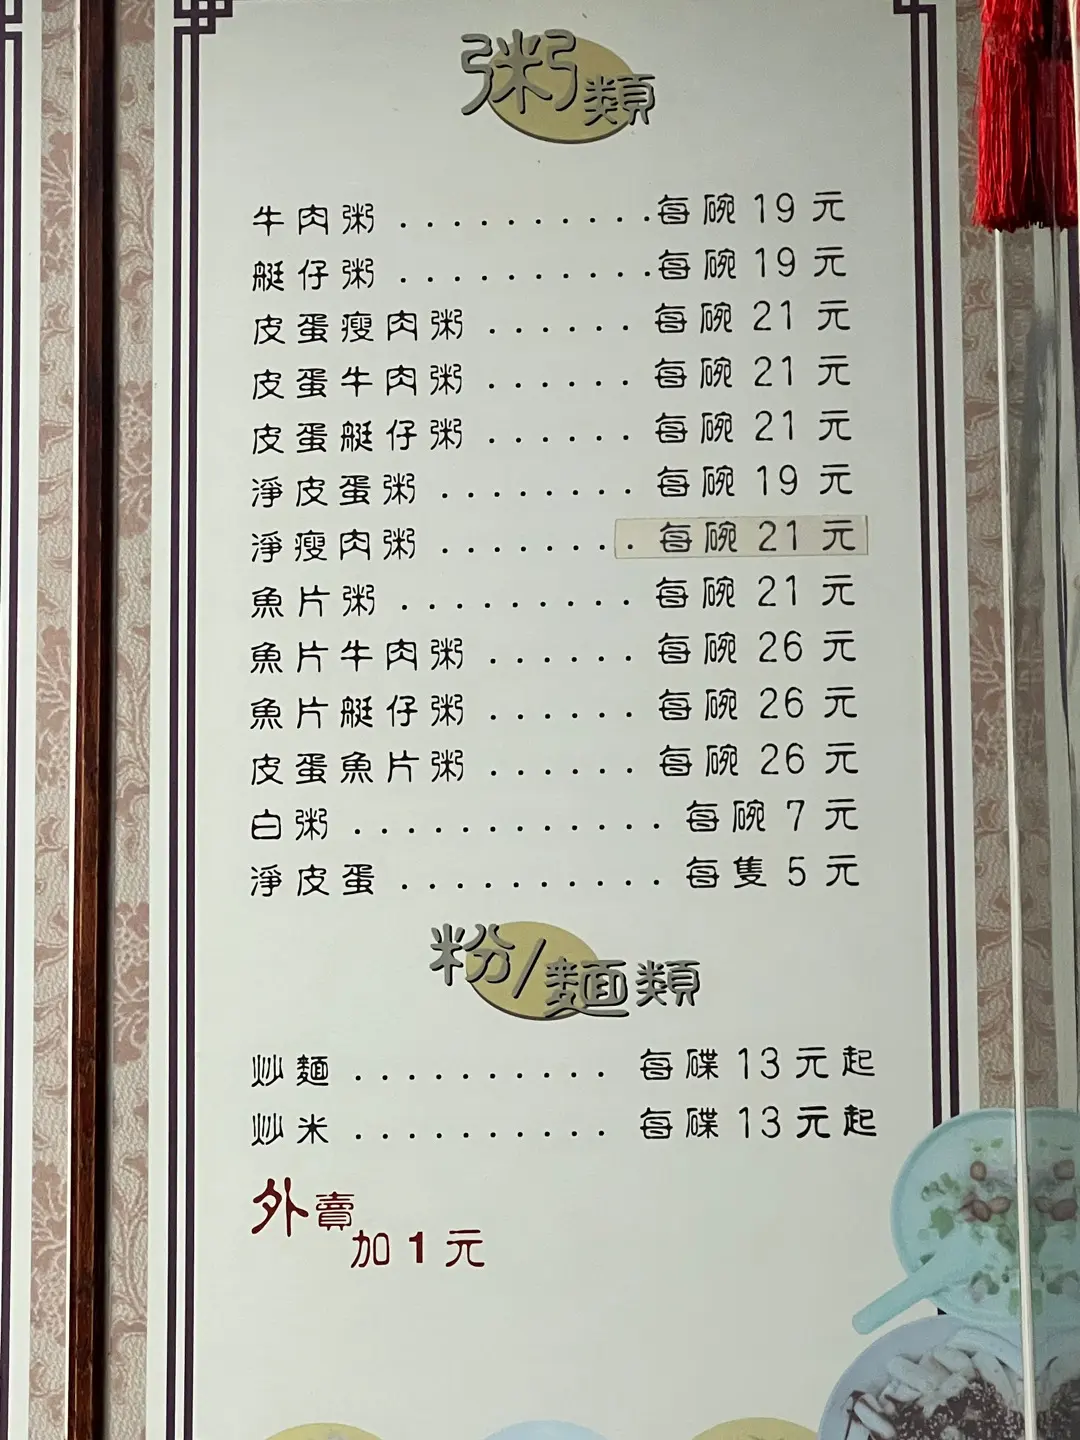 粥類
牛肉粥 ..........每碗 19 元
艇仔粥 ..........每碗 19 元
皮蛋瘦肉粥 ...... 每碗 21 元
皮蛋牛肉粥 ...... 每碗 21 元
皮蛋艇仔粥 ...... 每碗 21 元
淨皮蛋粥 ........ 每碗 19 元
淨瘦肉粥 ........ 每碗 21 元
魚片粥 ......... 每碗 21 元
魚片牛肉粥 ...... 每碗 26 元
魚片艇仔粥 ...... 每碗 26 元
皮蛋魚片粥 ...... 每碗 26 元
白粥 ............ 每碗 7 元
淨皮蛋 .......... 每隻 5 元
粉/麵類
炒麵 .......... 每碟 13 元起
炒米 .......... 每碟 13 元起
外賣
加 1 元